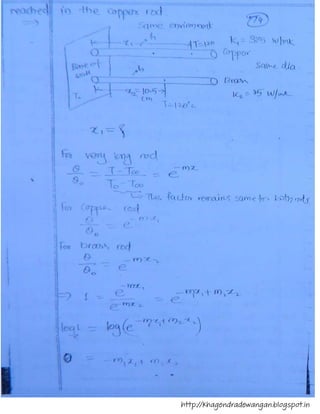 reached in the copper rod
274
⇒ Same environment
x₁ h T=120 K₁ = 385 W/mk
Copper
Base of wall h Same dia
T₀ x₂ = 10.5 cm Brass
T=120°c K₂ = 75 W/mk
x₁ = ?
For very long rod
θ/θ₀ = (T - T∞)/(T₀ - T∞) = e^-mx
This factor remains same for both rods
For Copper rod
θ/θ₀ = e^-m₁x₁
For brass rod
θ/θ₀ = e^-mx₂
⇒ 1 = e^-mx₁/e^-mx₂ = e^-m₁x₁ + m₂x₂
log 1 = log(e^-m₁x₁ + m₂x₂)
0 = -m₁x₁ + m₂x₂
http://khagendradewangan.blogspot.in